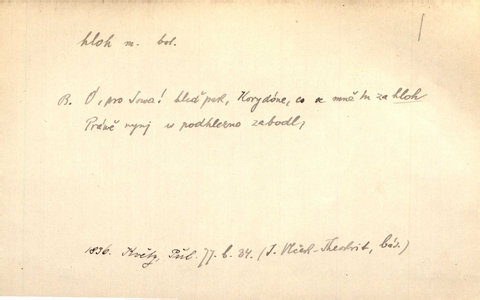 hloh m. bot.
B. Ó, pro Jowa! hleď pak, Korydóne, co se mně tu za hloh
Práwě nynj w podhlezno zabodl,
1836. Květy, Příl. 77. b. 34. (J. Vlček - Theokrit, bás.)